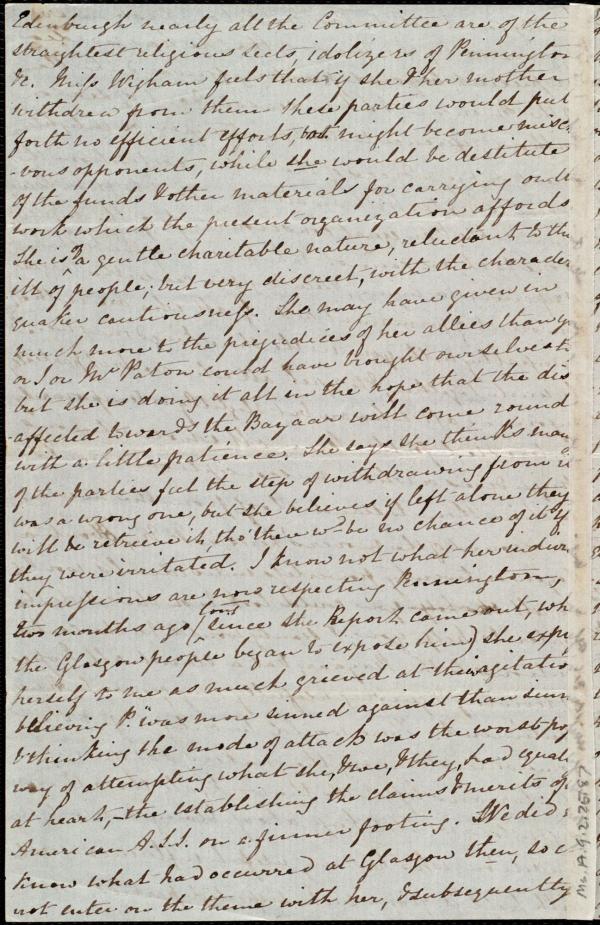 Edinburgh nearly all the Committee are of the
straightest religious sects, idolizers of Pennington
&c. Miss Wigham feels that if she & her mother
withdrew from them these parties would put
forth no efficient efforts, but might become misc
-vous opponents, while she would be destitute
of the funds & other materials for carrying on th
work which the present organization affords
She is of a gentle charitable nature, reluctant to th
ill of people; but very discreet, with the character
quaker cautiousness. She may have given in
much more to the prejudices of her allies than y
or I, or Mr Paton could have brought ourselves t
but she is doing it all in the hope that the dis
-affected towards the Bazaar will come round
with a little patience. She says she thinks many
of the parties feel the step of withdrawing from it
was a wrong one, but she believes if left alone they
will retrieve it, tho' there wd be no chance of it if
they were irritated. I know not what her
impressions are now respecting Pennington,
two months ago (since the Report came out, wh
the Glasgow people began to expose him) she exp
herself to me as much grieved at the agitatio
believing P. "was more sinned against than sinn
& thinking the mode of attack was the worst po
way of attempting what she, & we, & they, had equal
at heart,—the establishing the claims & merits of
American A.S.S. on a firmer footing. We did
know what had occurred at Glasgow then, so c
not enter on the theme with her, & subsequently
Ms. A. 9. 2. 25. 87